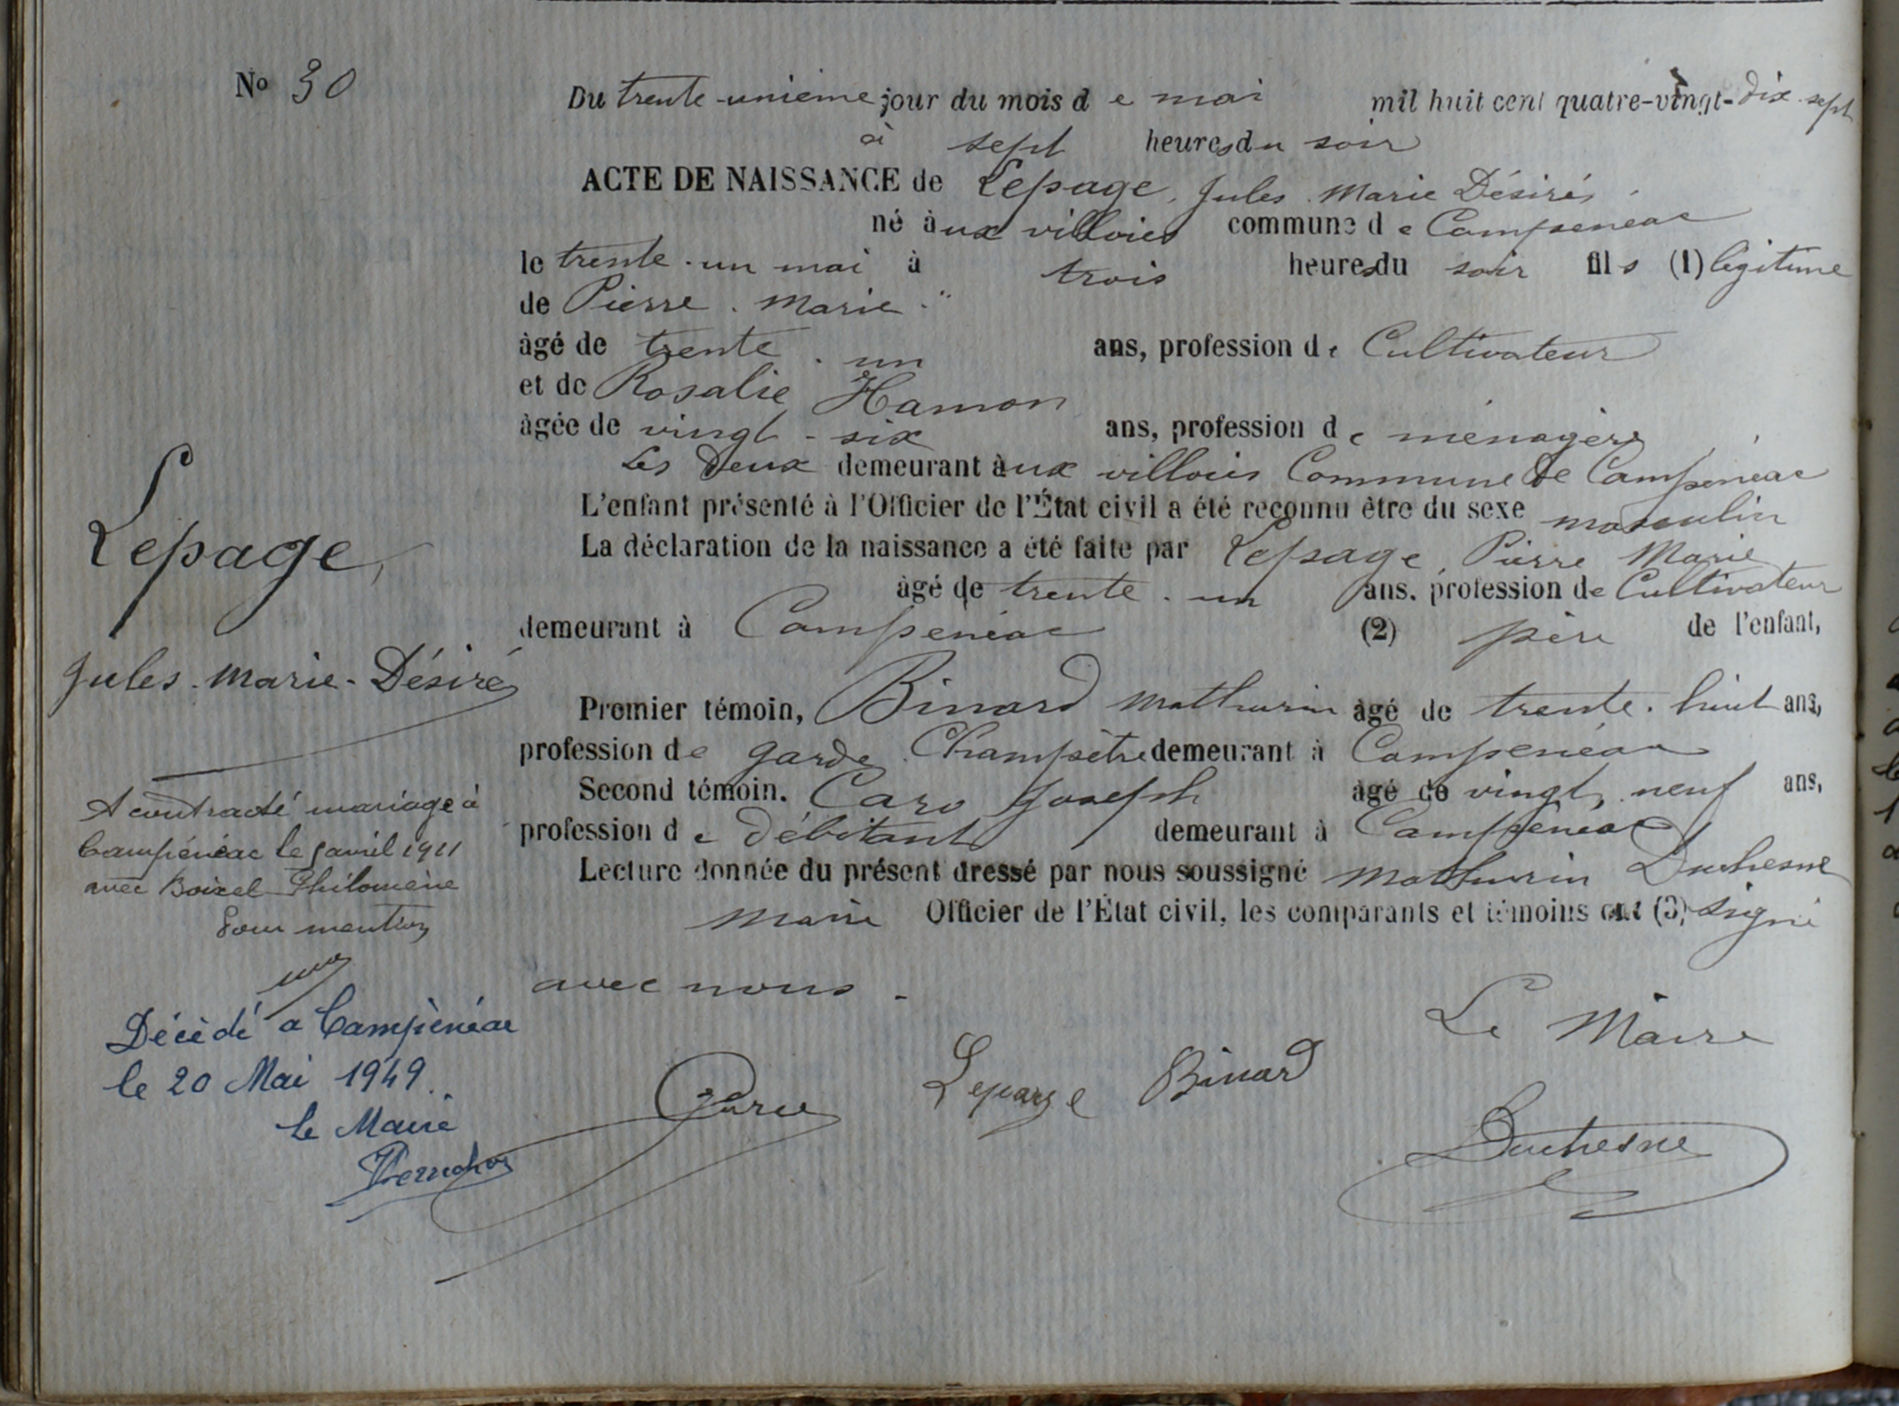 No 30
Du trente-unième jour du mois de mai mil huit cent quatre-vingt-dix-sept
à sept heures du soir
ACTE DE NAISSANCE de Lepage, Jules Marie Désiré,
né aux villoies commune de Campénéac
le trente-un mai à trois heures du soir fils (1) légitime
de Pierre Marie "
âgé de trente-un ans, profession de Cultivateur
et de Rosalie Hamon
âgée de vingt-six ans, profession de ménagère,
Les deux demeurant aux villoies Commune de Campénéac
L'enfant présenté à l'Officier de l'État civil a été reconnu être du sexe masculin
La déclaration de la naissance a été faite par Lepage, Pierre Marie
âgé de trente-un ans, profession de Cultivateur
demeurant à Campénéac (2) père de l'enfant,
Premier témoin, Binard Mathurin âgé de trente-huit ans,
profession de garde Champêtre demeurant à Campénéac
Second témoin, Caro Joseph âgé de vingt-neuf ans,
profession de débitant demeurant à Campénéac
Lecture donnée du présent dressé par nous soussigné Mathurin Duchesne
Maire Officier de l'État civil, les comparants et témoins ont (3) signé
avec nous.
Le Maire
Caro Lepage Binard
Duchesne
Lepage,
Jules-Marie-Désiré
A contracté mariage à
Campénéac le avril 1921
avec Boixel Philomène
Pour mention
Décédé a Campénéac
le 20 Mai 1949.
Le Maire